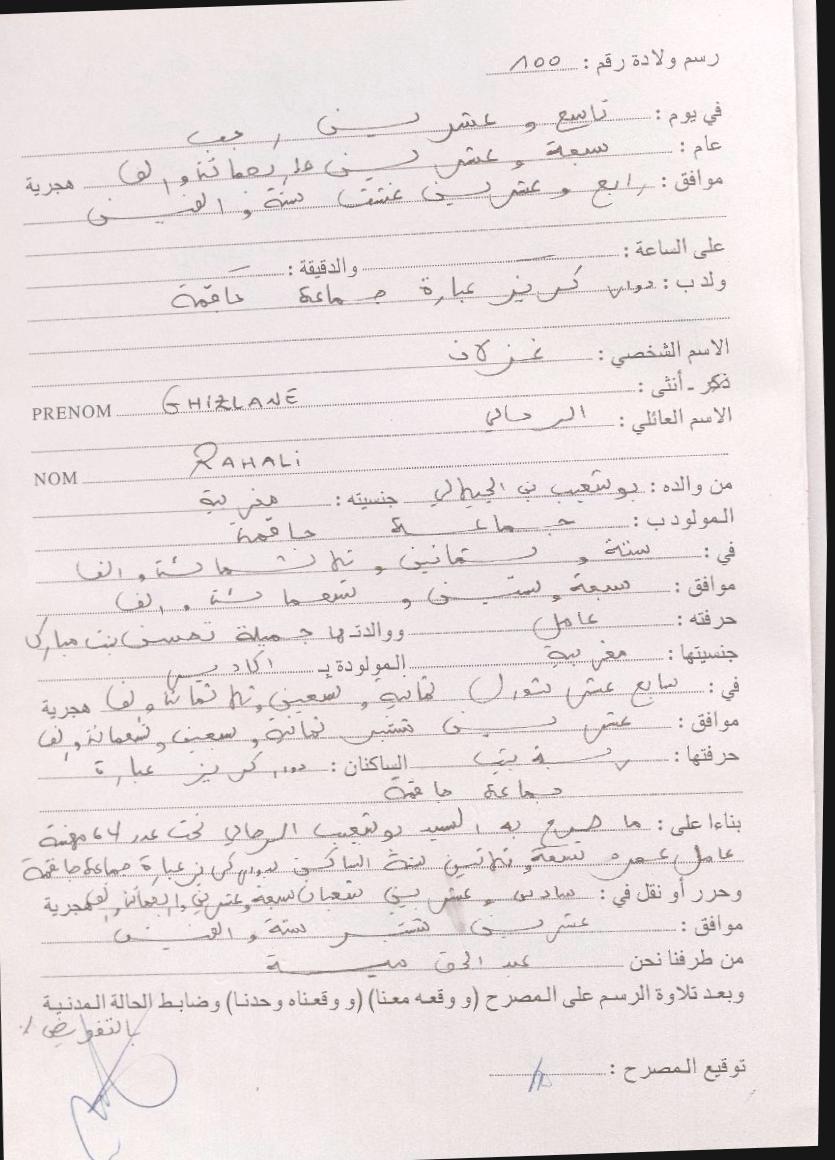 رسم ولادة رقم : 100
في يوم : تاسع و عشرين رجب
عام : سبعة و عشرين و اربعمائة و الف هجرية
موافق : رابع و عشرين غشت ستة و الفين
على الساعة : والدقيقة :
ولد ب : دوار كريز عبارة جماعة حاقمة
الاسم الشخصي : غزلان
ذكر - أنثى :
PRENOM GHIZLANE
الاسم العائلي : الرحالي
NOM RAHALI
من والده : بوشعيب بن الجيلالي جنسيته : مغربية
المولود ب : جماعة حاقمة
في : ستة و ثمانين و ثلاثمائة و الف
موافق : سبعة و ستين و تسعمائة و الف
حرفته : عامل ووالدتها جميلة بنت مبارك
جنسيتها : مغربية المولودة بـ اكادير
في : سابع عشر شوال ثمانية و تسعين و ثلاثمائة و الف هجرية
موافق : عشرين شتنبر ثمانية و سبعين و تسعمائة و الف
حرفتها : ربة بيت الساكنان : دوار كريز عبارة
جماعة حاقمة
بناءا على : ما صرح به السيد بوشعيب الرحالي تحت عدد 64 مهنته
عامل عمره تسعة و ثلاثين سنة الساكن بدوار كريز عبارة جماعة حاقمة
وحرر أو نقل في : سادس و عشرين شعبان سبعة و عشرين و اربعمائة و الف هجرية
موافق : عشرين شتنبر ستة و الفين
من طرفنا نحن عبد الحق
وبعد تلاوة الرسم على المصرح (و وقعه معنا) (و وقعناه وحدنا) وضابط الحالة المدنية
بالتفويض
توقيع المصرح :